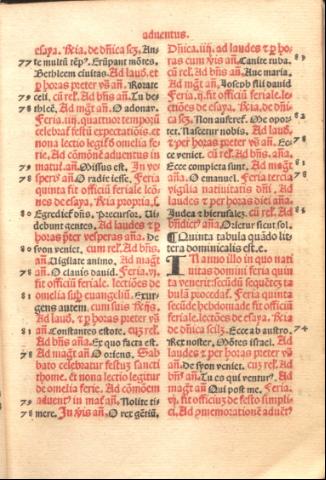 adventus.
esaya. ꝶia. de dñica scȝ. An-
77 te multū tēpꝰ. Erūpant mōtes.
Bethleem civitas. Ad laud. et
p̱ horas preter vꝰ añ. Rorate
79 celi. cū rel. Ad bñs añ. Tu be-
78 thleē. Ad magt̄ añ. O adonay.
Feria. iiij. quattuor temporū
celebraf festū expectatiōis. et
nona lectio legit̄ omelia fe-
rie. Ad cōmōnē adventus in
77 matuṫ. añ. Missus est. In ve-
78 sperꝰ añ. O radix iesse. Feria
quinta fit officiū feriale lcō-
nes de esaya. ꝶia propria. s.
80 Egredietꝰ dñs. Precursor. Ui-
debunt gentes. Ad laudes et p̱
horas p̄ter vesperas añ. De
80 syon veniet. cum rel. Ad bñs.
añ. Vigilate animo. Ad magt̄
78 añ. O clavis david. Feria. vj.
fit officiū feriale. lectiōes de
81 omelia sup̱ euangeliū. Exur-
gens autem. cum suis ꝶijs.
Ad laud. et p̱ horas preter vꝰ
81 añ. Constantes estote. cuȝ rel.
Ad bñs añ. Ex quo facta est.
78 Ad magt̄ añ O oriens. Sab-
bato celebratur festuȝ sancti
thome. Et nona lectio legitur
de omelia ferie. Ad cōmōem
79 adventꝰ in mat̄ añ. Nolite ti-
78 mere. In vjis añ. O rex gētiū.
Dñica. iiij. ad laudes et p̱ ho-
ras cum vjis añ Canite tuba. 83
cū rel. Ad bñs añ. Ave maria.
Ad magt̄ añ. Joseph fili david
Feria. ij. fit officiū feriale. le-
ctiōes de esaya. ꝶia. de dñi-
ca scȝ. Non auferef. Me opor-
tet. Nascetur nobis. Ad laud.
et p̱ horas preter vꝰ añ. Ec-
ce veniet. cū rel. Ad bñs. añ.
Ecce completa sunt. Ad magt̄
añ. O emanuel. Feria tercia
vigilia nativitatis dñi. Ad
laudes et p̱ horas dici añas.
Judea et hierusaleȝ. cū rel. Ad 86
bñdictꝰ añ. Orietur sicut sol.
¶ Quinta tabula quādo lit-
tera dominicalis est. e.
IN anno illo in quo nati
uitas domini feria quin
ta venerit: secūdū sequētē ta
bulā procedaf. Feria quinta
secūde hebdomade fit officiū
feriale. lectiōes de esaya. ꝶia
de dñica scȝ. Ecce ab austro. 74
Rex noster. Mōtes israel. Ad
laudes et p̱ horas preter vꝰ
añ. De syon veniet. cuȝ rel. Ad
bñs añ. Tu es qui venturꝰ. Ad
magt̄ añ Qui post me. Feria.
vj. fit officiuȝ de festo simpli-
ci. Ad pmemorationē advēt